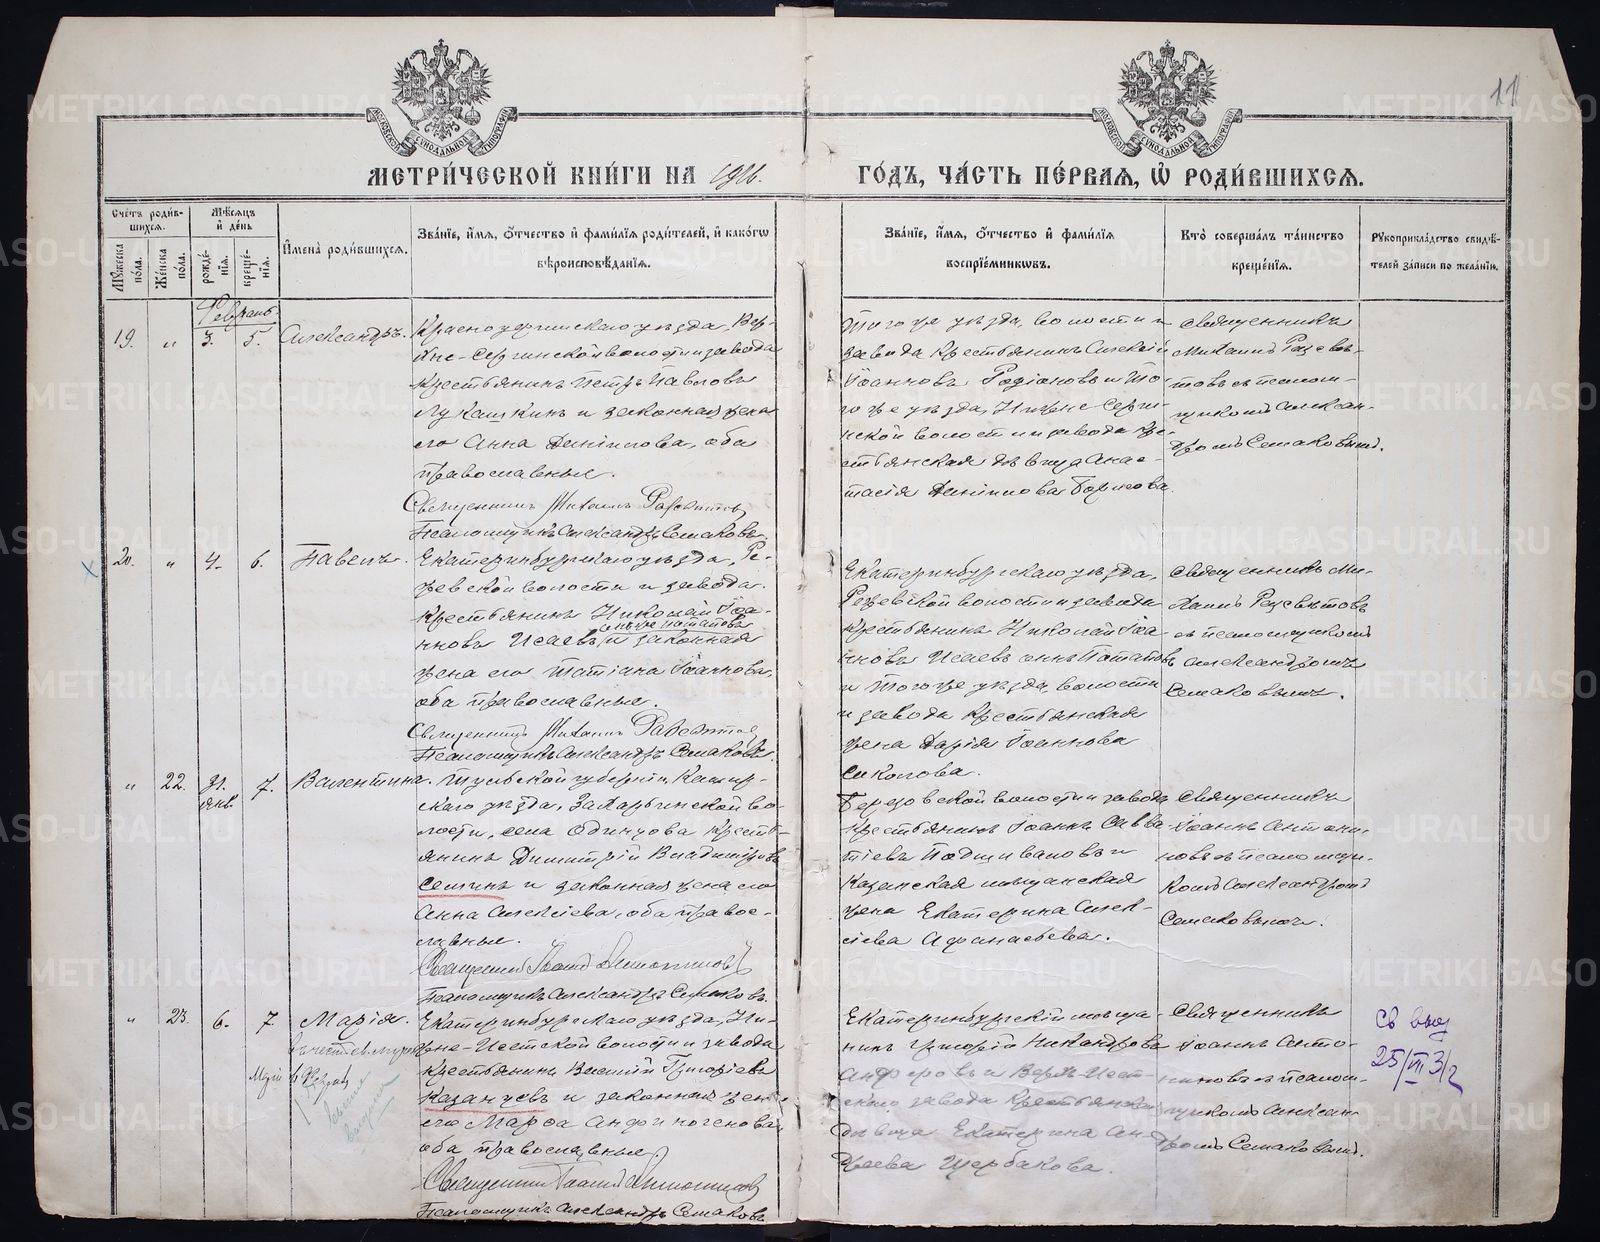 11
МЕТРИ́ЧЕСКОЙ КНИ́ГИ НА 1916.
ГО́ДЪ, ЧА́СТЬ ПЕ́РВАЯ, Ѡ РОДИ́ВШИХСЯ.
Сче́тъ роди́в-
шихся.
Мѣ́сяцъ
и де́нь
Му́жеска по́ла.
Же́нска по́ла.
рожде́-
нія.
креще́-
нія.
Имена̀ роди́вшихся.
Зва́ніе, и́мя, о́тчество и фами́лія роди́телей, и како́гѡ
вѣроисповѣ́данія.
Зва́ніе, и́мя, о́тчество и фами́лія
воспріе́мниковъ.
Кто̀ соверша́лъ та́инство
креще́нія.
Рукоприкла́дство свидѣ́-
телей за́писи по жела́нію.
Февраль
19. " 3. 5. Александръ.
Красноуфимскаго уѣзда, Вер-
хне-Сергинской волости и завода
крестьянинъ Петръ Павловъ
Лукашкинъ и законная жена
его Анна Данiилова, оба
православные.
Священникъ Михаилъ
Псаломщикъ Александръ Семаковъ.
Того же уѣзда, волости и
завода крестьянинъ Алексѣй
Іоанновъ Родіоновъ и то-
го же уѣзда, Нижне-Серги-
нской волости и завода кре-
стьянская дѣвица Анас-
тасія Даніилова
Священникъ
Михаилъ
съ псалом-
щикомъ Алексан-
дромъ Семаковымъ.
20. " 4. 6. Павелъ.
Екатеринбургскаго уѣзда, Ре-
жевской волости и завода
крестьянинъ Николай Іоа-
нновъ Исаевъ, онъ же Потаповъ и законная
жена его Татіана Іоаннова,
оба православные.
Священникъ Михаилъ
Псаломщикъ Александръ Семаковъ.
Екатеринбургскаго уѣзда,
Режевской волости и завода
крестьянинъ Николай Іоа-
нновъ Исаевъ онъ же Потаповъ
и того же уѣзда, волости
и завода крестьянская
жена Дарія Іоаннова
Соколова.
Священникъ Ми-
хаилъ
съ псаломщикомъ
Александромъ
Семаковымъ.
" 22. 31. янв. 7. Валентина.
Тульской губерніи, Кашир-
скаго уѣзда, Захарьинской во-
лости, села Одинцова крестья-
янинъ Димитрій Владиміровъ
Семинъ и законная жена его
Анна Алексѣева, оба право-
славные.
Священникъ Іоаннъ
Псаломщикъ Александръ Семаковъ.
Березовской волости и завода
крестьянинъ Іоаннъ Савва-
тіевъ Подшиваловъ и
Казанская мѣщанская
жена Екатерина Алек-
сіева Афанасьева.
Священникъ
Іоаннъ Антони-
новъ съ псаломщи-
комъ Александромъ
Семаковымъ.
" 23. 6. 7. Марія.
Екатеринбургскаго уѣзда, Ни-
жне-Исетской волости и завода
крестьянинъ Василій Григоріевъ
Казанцевъ и законная жена
его Марфа Анфиногенова,
оба православные
Священникъ Іоаннъ
Псаломщикъ Александръ Семаковъ.
Екатеринбургскій мѣща-
нинъ Григорій Никандровъ
Анфѣровъ и Верхъ-Исет-
скаго завода крестьянская
дѣвица Екатерина Ан-
дреева Щербакова.
Священникъ
Іоаннъ Анто-
ниновъ съ псалом-
щикомъ Алексан-
дромъ Семаковымъ.
Св выд
25/VII 3/2